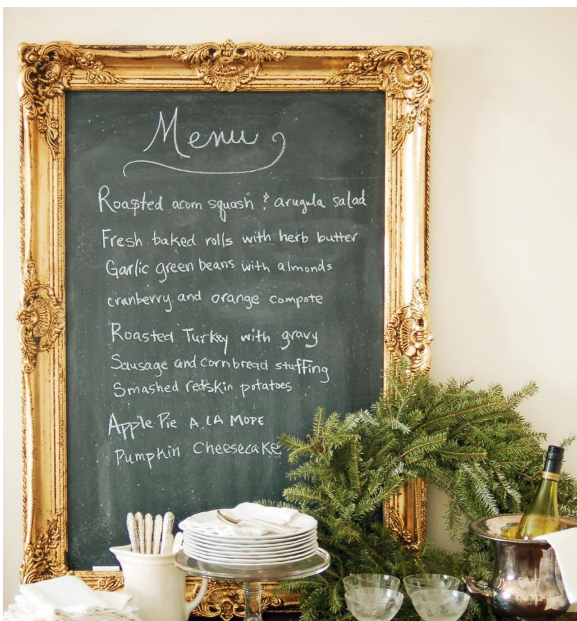 Menu
Roasted acorn squash & arugula salad
Fresh baked rolls with herb butter
Garlic green beans with almonds
cranberry and orange compote
Roasted Turkey with gravy
Sausage and cornbread stuffing
Smashed redskin potatoes
Apple Pie A LA MODE
Pumpkin Cheesecake